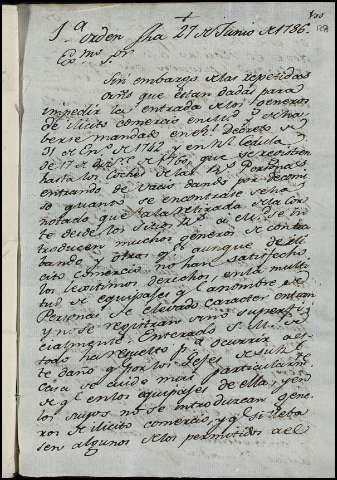 1.ª orden fha 27 de Junio de 1786.
Ex.mo S.or
Sin embargo de las repetidas
orns que están dadas para
impedir la entrada de los generos
de ilicito comercio en esta
berse mandado en rl. Decreto de
31 de En.o de 1742 y en rl. Cedula
de 17 de de 1760 que se registren
hasta los Coches de las rs. Personas
entrando de vacio dando por decomi
so quanto se encontrase se ha
notado que a la retirada de la Cor
te desde los Sitios rs. a M. se in
troducen muchos generos de contra
bando y otros q.e aunque de li
cito comercio no han satisfecho
los lexitimos derechos, en la multi
tud de equipajes q.e a nombre de
Personas de elevado caracter entran
y no se registran sino superfi
cialmente. Enterado S. M. de
todo ha resuelto p.a ocurrir a es
te daño q.e por los Gefes de su rl.
Casa se cuide mui particularm.te
de q.e en los equipajes de ella, y en
los suyos no se introduzcan gene
ros de ilicito comercio, y q.e si lleba
sen algunos de los permitidos a el